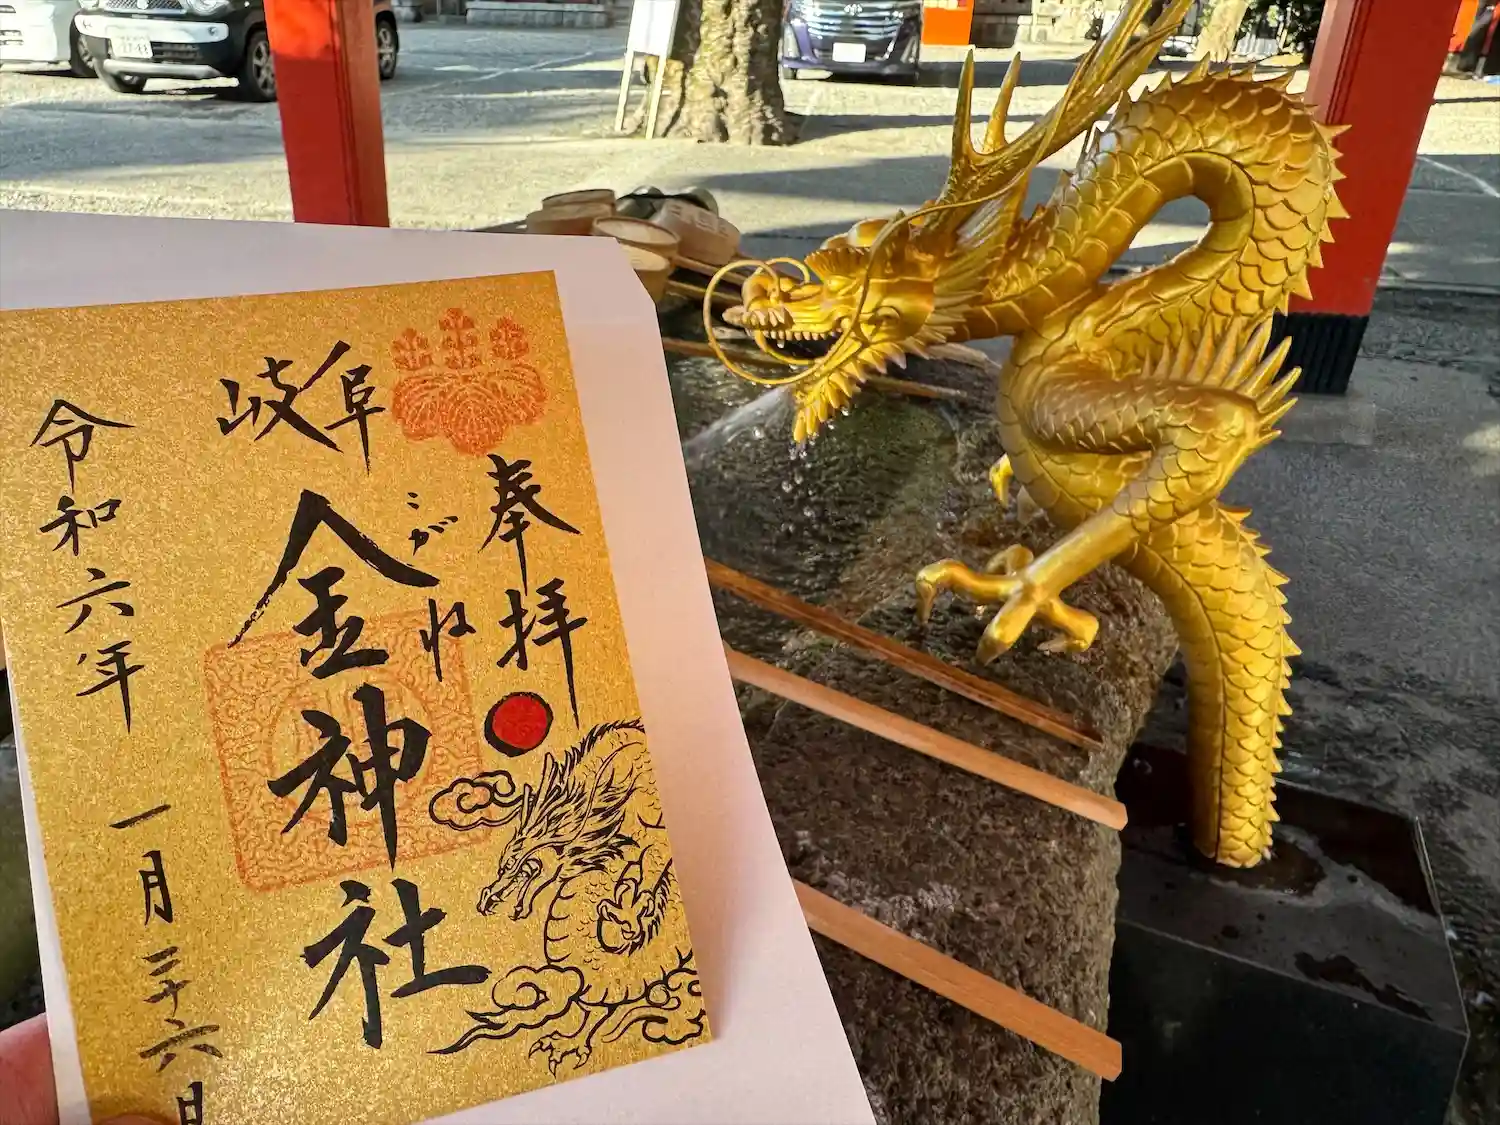 奉拝
こがね
岐阜
金神社
令和六年 一月二十六日